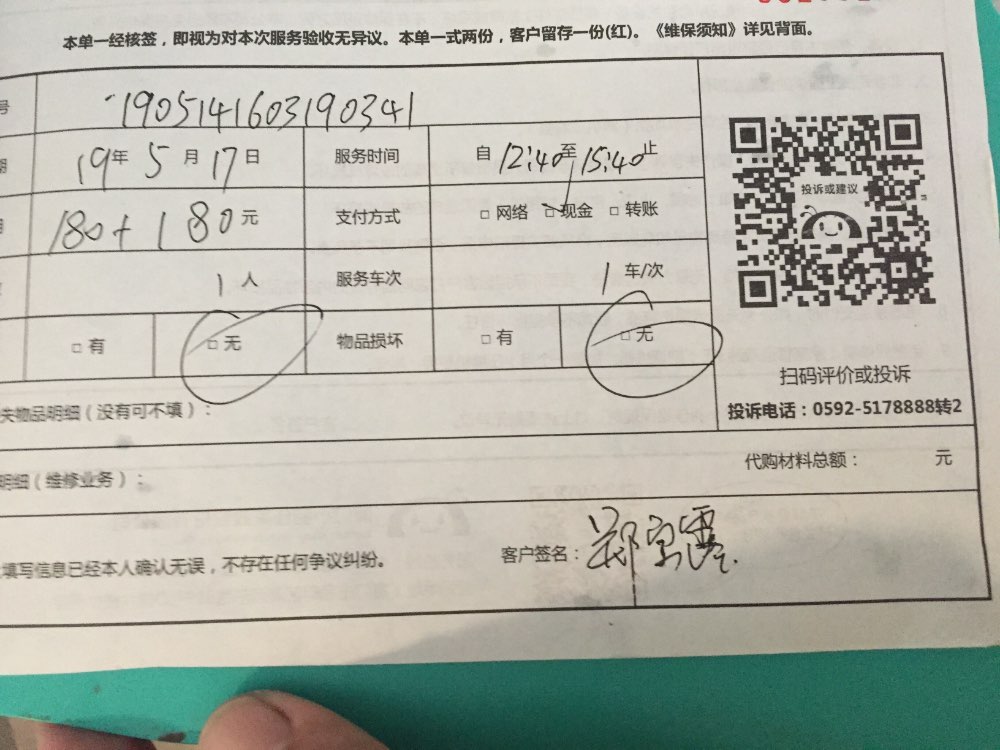 本单一经核签，即视为对本次服务验收无异议。本单一式两份，客户留存一份(红)。《维保须知》详见背面。
号 1905141603190341
19年5月17日 服务时间 自12:40至15:40止
180+180元 支付方式 □ 网络 □ 现金 □ 转账
1人 服务车次 1车/次
□ 有 □ 无 物品损坏 □ 有 □ 无
投诉或建议
扫码评价或投诉
投诉电话：0592-5178888转2
失物品明细（没有可不填）：
明细（维修业务）： 代购材料总额： 元
填写信息已经本人确认无误，不存在任何争议纠纷。 客户签名：郑